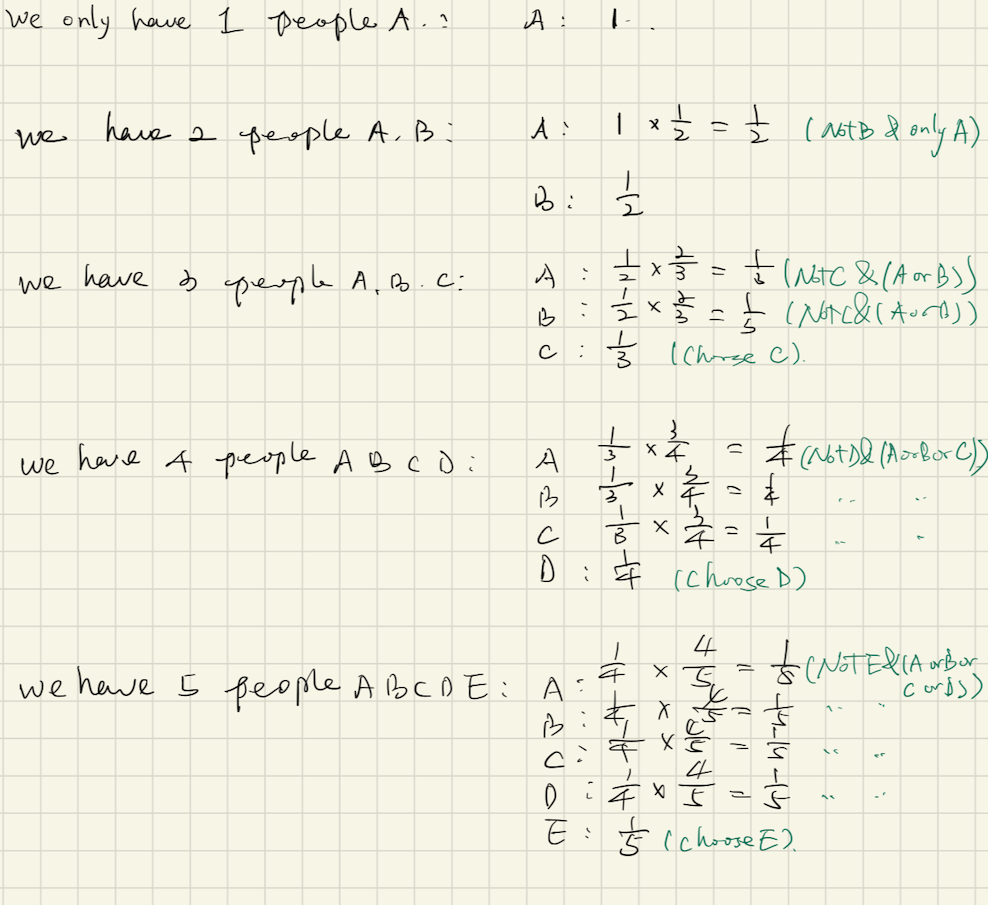 We only have 1 people A. : A : 1 .
we have 2 people A. B : A : 1 × 1/2 = 1/2 (Not B & only A)
B : 1/2
we have 3 people A. B. C : A : 1/2 × 2/3 = 1/3 (Not C & (A or B))
B : 1/2 × 2/3 = 1/5 (Not C & (A or B))
C : 1/3 (Choose C).
we have 4 people A B C D : A 1/3 × 3/4 = 1/4 (Not D & (A or B or C))
B 1/3 × 3/4 = 1/4 " "
C 1/3 × 3/4 = 1/4 " "
D : 1/4 (Choose D)
we have 5 people A B C D E : A : 1/4 × 4/5 = 1/5 (NOT E & (A or B or
C or D))
B : 1/4 × 4/5 = 1/5 " "
C : 1/4 × 4/5 = 1/5 " "
D : 1/4 × 4/5 = 1/5 " "
E : 1/5 (choose E).